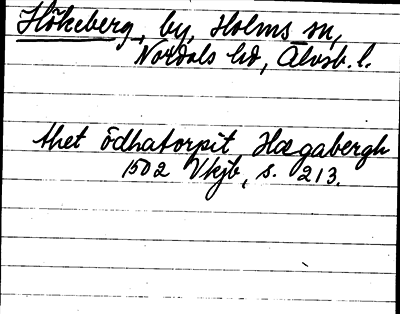 Hökeberg, by, Holms sn,
Nordals hd, Älvsb. l.
thet ödhatorpit Hægabergh
1502 Vkjb, s. 213.